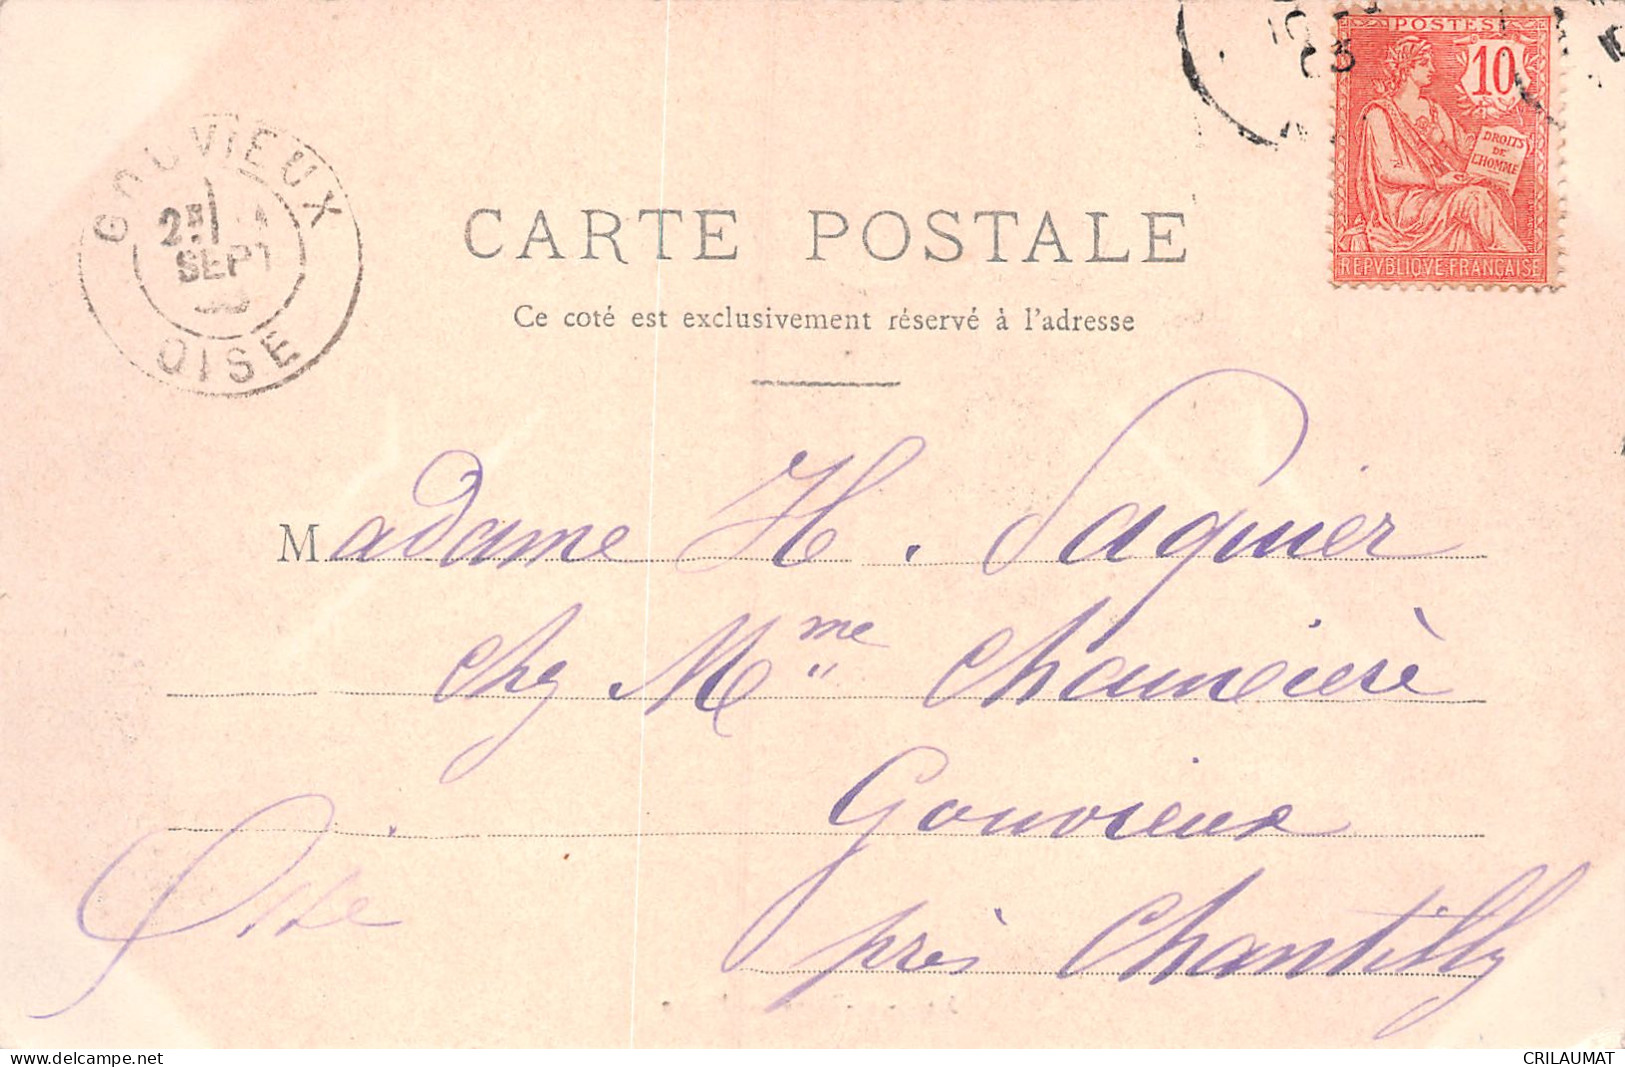 POSTES
10
DROITS
DE
L'HOMME
REPVBLIQVE FRANÇAISE
GOUVIEUX
SEPT
OISE
CARTE POSTALE
Ce coté est exclusivement réservé à l'adresse
Madame H. Saguier
chez Mme Chaumeière
Gouvieux
près Chantilly
Oise
www.delcampe.net
CRILAUMAT